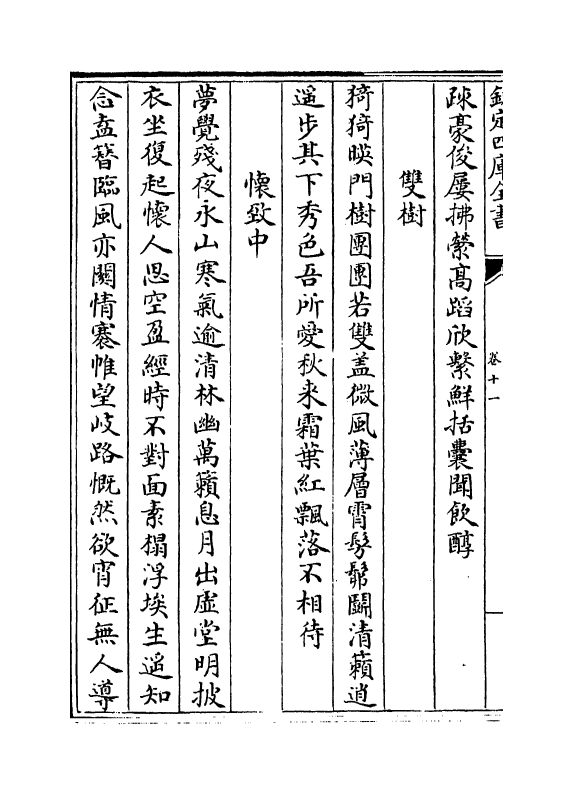 欽定四庫全書
卷十一
疎豪俊屢拂縈高蹈欣繫鮮括囊聞飲醇
雙樹
猗猗暎門樹團團若雙盖微風薄層霄髣髴鬭清籟逍
遥步其下秀色吾所愛秋来霜葉紅飄落不相待
懐致中
夢覺殘夜永山寒氣逾清林幽萬籟息月出虚堂明披
衣坐復起懐人思空盈經時不對面素榻浮埃生遥知
念盍簪臨風亦關情褰帷望歧路慨然欲宵征無人導